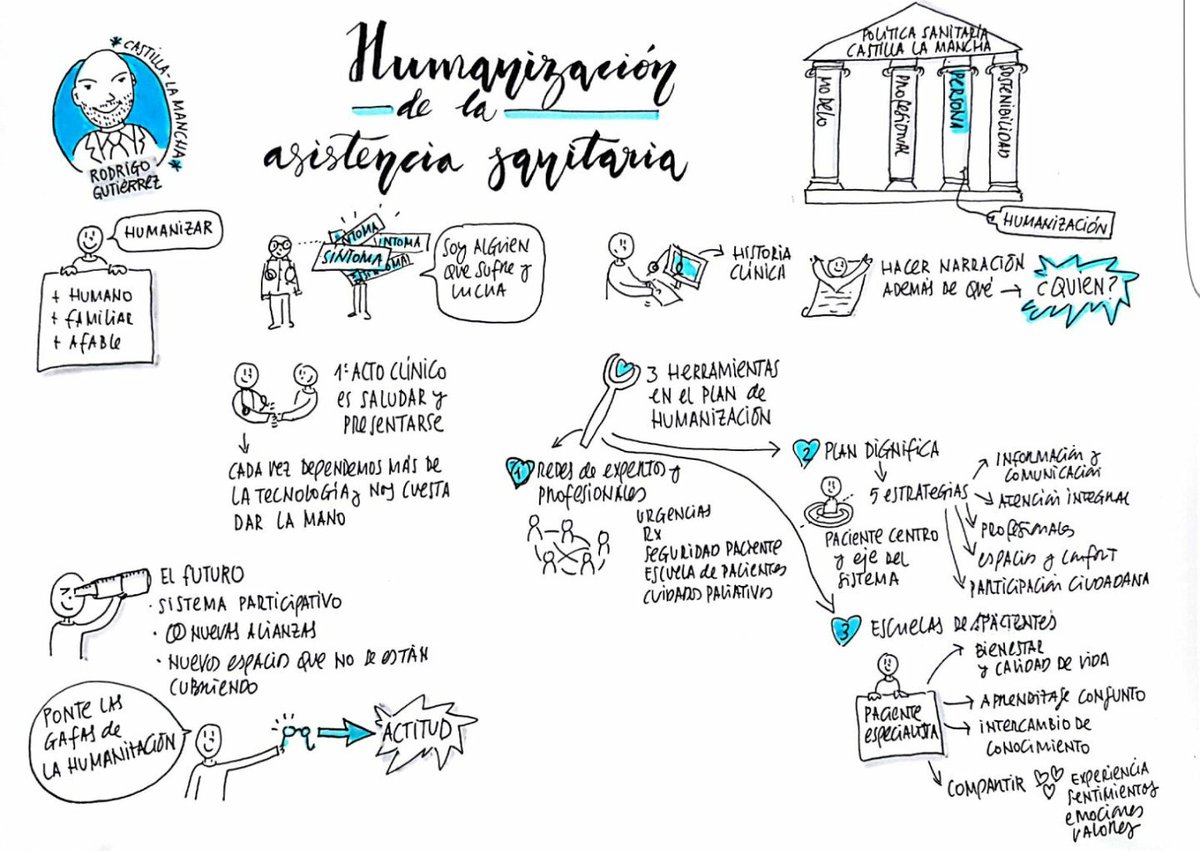 CASTILLA-LA MANCHA
RODRIGO
GUTIÉRREZ
Humanización
de la
asistencia sanitaria
POLÍTICA SANITARIA
CASTILLA LA MANCHA
MODELO
PROFESIONAL
PERSONA
SOSTENIBILIDAD
HUMANIZACIÓN
HUMANIZAR
+ HUMANO
+ FAMILIAR
+ AFABLE
SÍNTOMA
SÍNTOMA
SÍNTOMA
SÍNTOMA
SOY ALGUIEN
QUE SUFRE Y
LUCHA
HISTORIA
CLÍNICA
HACER NARRACIÓN
ADEMÁS DE QUÉ →
¿QUIEN?
1º ACTO CLÍNICO
ES SALUDAR Y
PRESENTARSE
CADA VEZ DEPENDEMOS MÁS DE
LA TECNOLOGÍA Y NOS CUESTA
DAR LA MANO
3 HERRAMIENTAS
EN EL PLAN DE
HUMANIZACIÓN
1 REDES DE EXPERTOS Y
PROFESIONALES
URGENCIAS
RX
SEGURIDAD PACIENTE
ESCUELA DE PACIENTES
CUIDADOS PALIATIVOS
2 PLAN DIGNIFICA
5 ESTRATEGIAS
PACIENTE CENTRO
Y EJE DEL
SISTEMA
INFORMACIÓN Y
COMUNICACIÓN
ATENCIÓN INTEGRAL
PROFESIONALES
ESPACIOS Y CONFORT
PARTICIPACIÓN CIUDADANA
3 ESCUELAS DE PACIENTES
PACIENTE
ESPECIALISTA
BIENESTAR
Y CALIDAD DE VIDA
APRENDIZAJE CONJUNTO
INTERCAMBIO DE
CONOCIMIENTO
COMPARTIR
EXPERIENCIA
SENTIMIENTOS
EMOCIONES
VALORES
EL FUTURO
· SISTEMA PARTICIPATIVO
· NUEVAS ALIANZAS
· NUEVOS ESPACIOS QUE NO SE ESTÁN
CUBRIENDO
PONTE LAS
GAFAS DE
LA HUMANIZACIÓN
ACTITUD